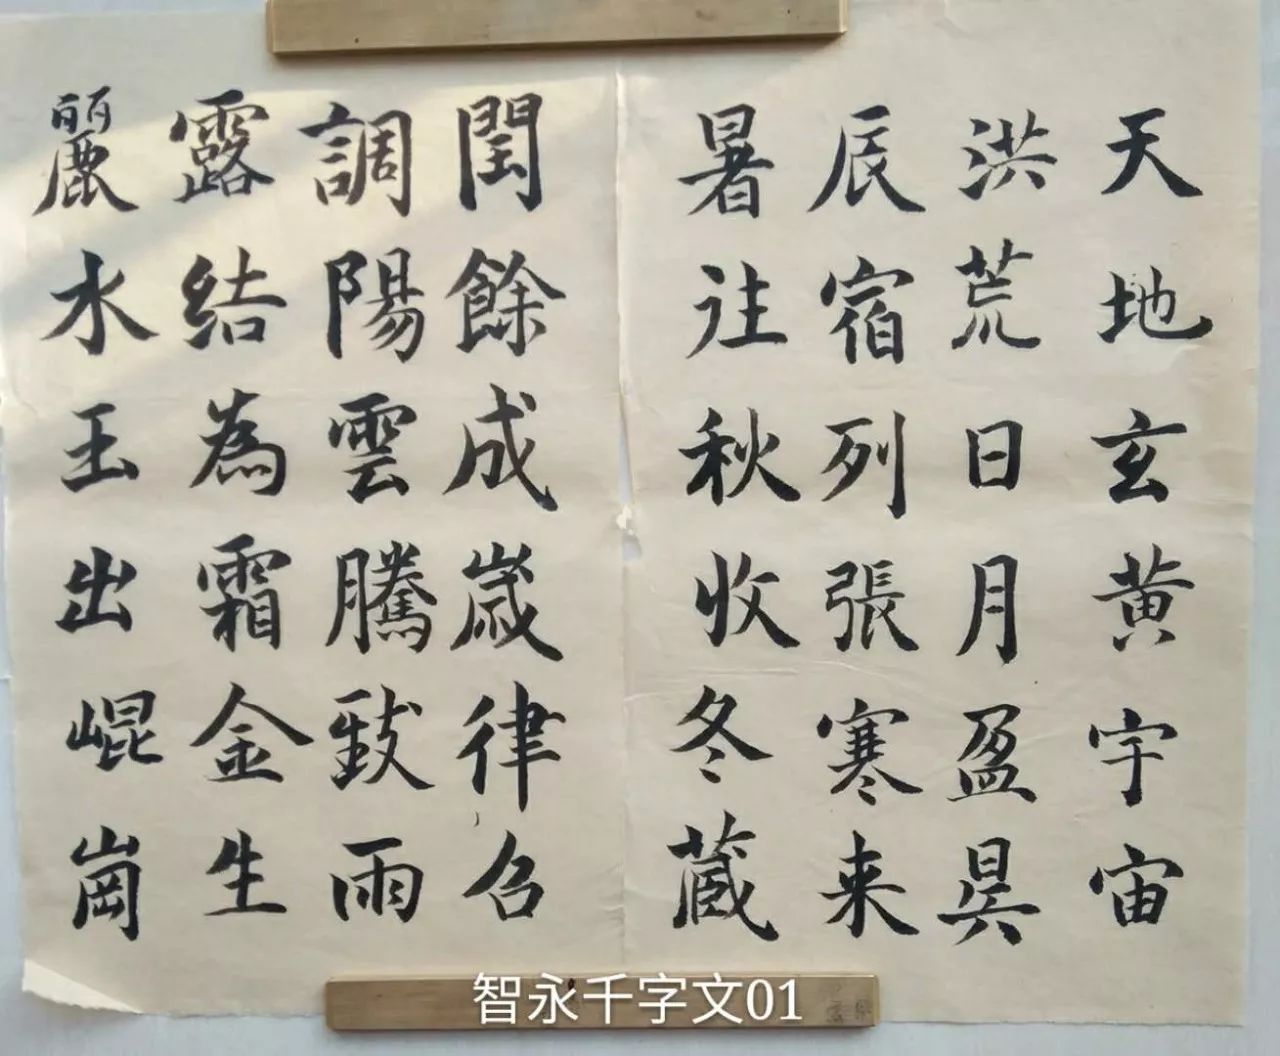 天地玄黄宇宙
洪荒日月盈昃
辰宿列張寒来
暑往秋收冬蔵
閏餘成歲律召
調陽雲騰致雨
露結為霜金生
麗水玉出崐崗
智永千字文01